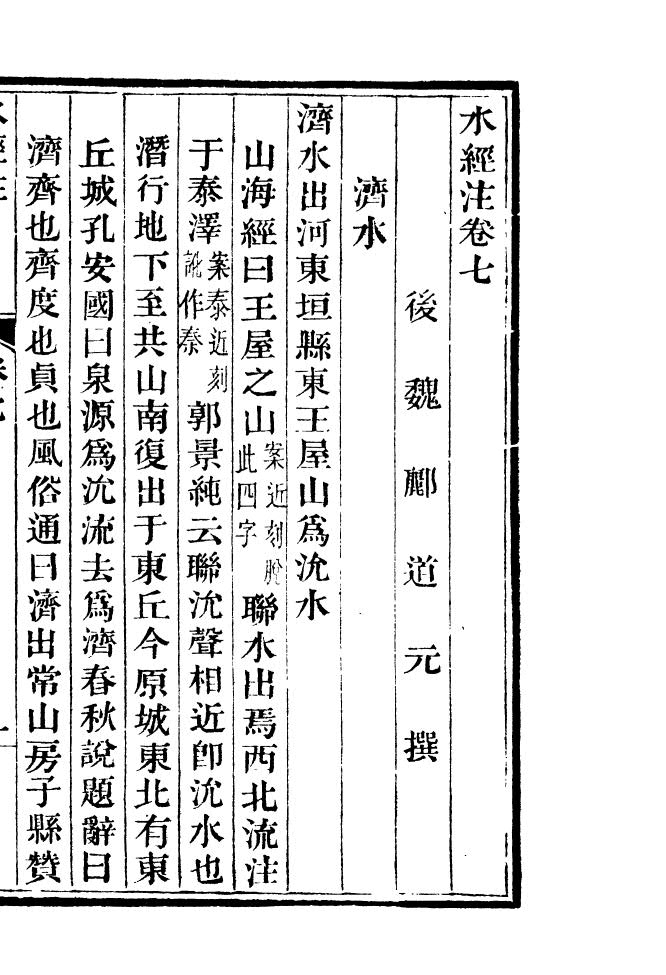 水經注卷七
後魏酈道元撰
濟水
濟水出河東垣縣東王屋山爲沇水
山海經曰王屋之山案近刻脫此四字聯水出焉西北流注
于泰澤案泰近刻訛作秦郭景純云聯沇聲相近卽沇水也
潛行地下至共山南復出于東丘今原城東北有東
丘城孔安國曰泉源爲沇流去爲濟春秋說題辭曰
濟齊也齊度也貞也風俗通曰濟出常山房子縣贊